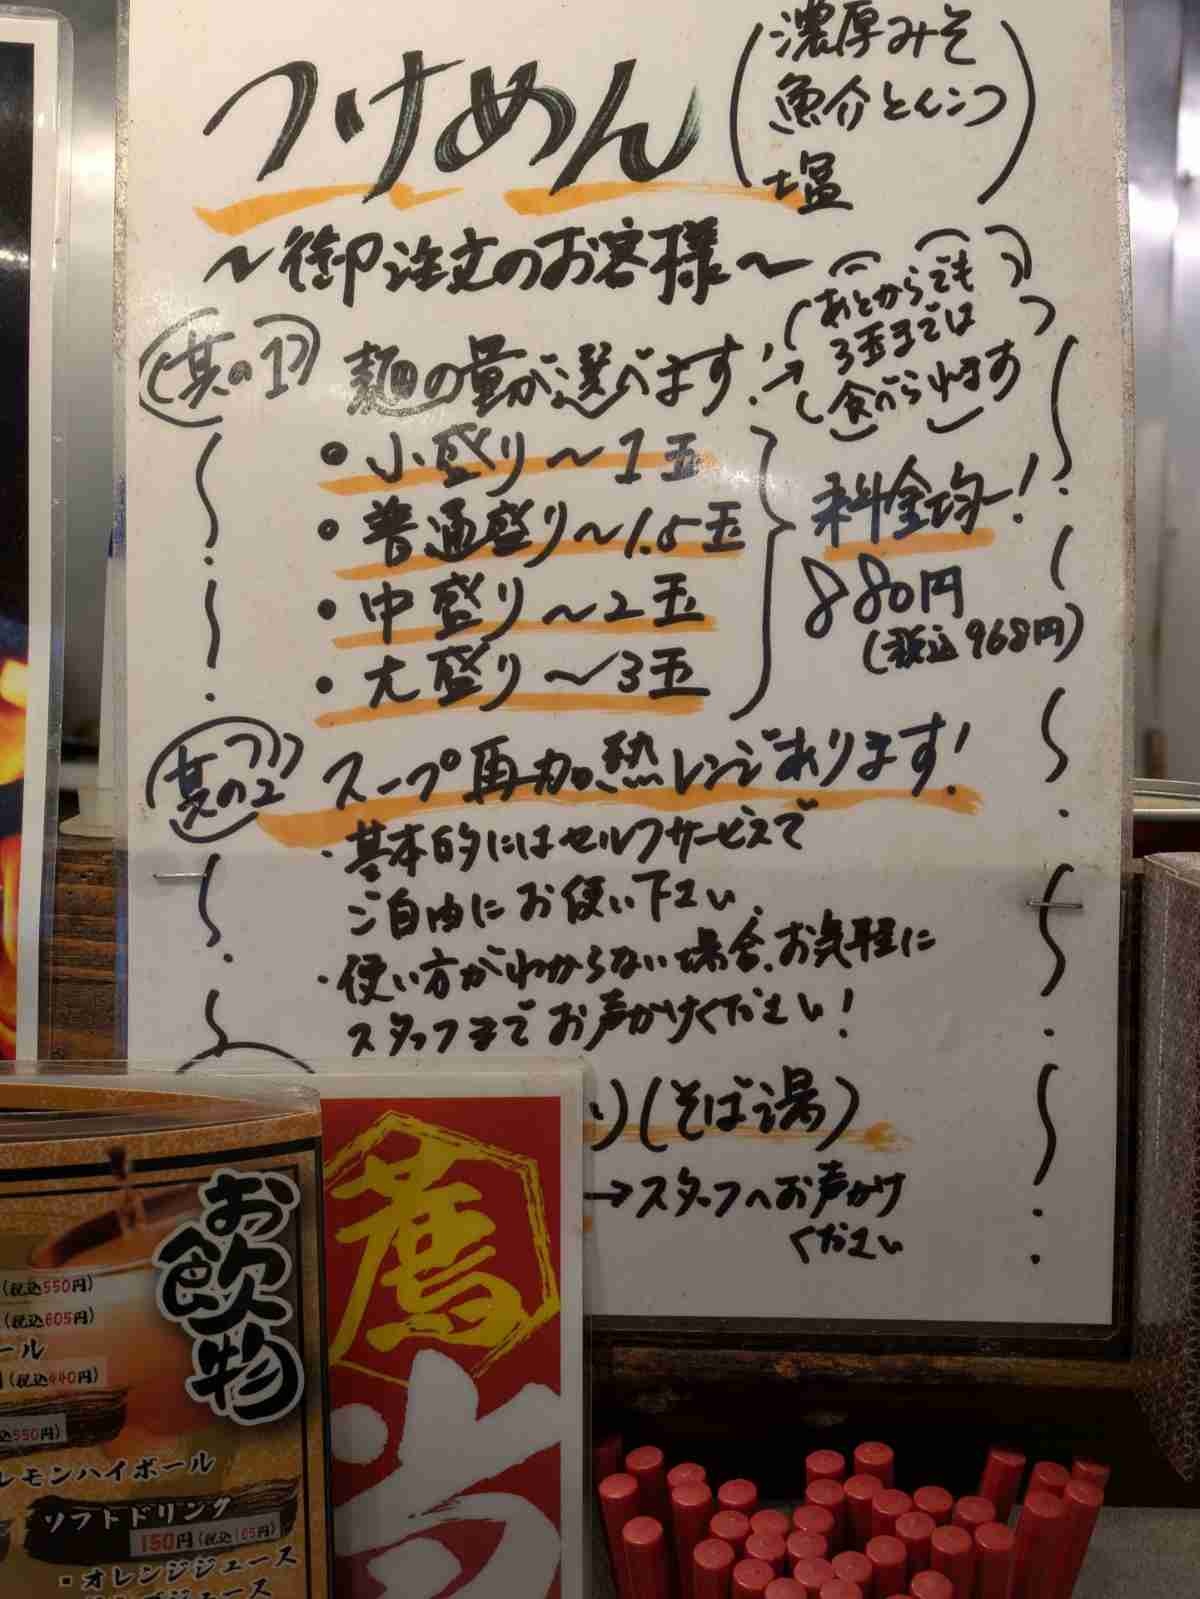 つけめん
(濃厚みそ
魚介とんこつ
塩)
～御注文のお客様～
其の1
麺の量が選べます!
→(あとからでも
3玉までは
食べられます)
・小盛り～1玉
・普通盛り～1.5玉
・中盛り～2玉
・大盛り～3玉
料金均一!
880円
(税込968円)
其の2
スープ再加熱レンジあります!
・基本的にはセルフサービスで
ご自由にお使い下さい。
・使い方がわからない場合、お気軽に
スタッフまでお声がけください!
り(そば湯)
→スタッフへお声がけ
ください
薦
お飲物
(税込550円)
(税込605円)
ール
(税込440円)
込550円)
レモンハイボール
ソフトドリンク
150円(税込165円)
・オレンジジュース